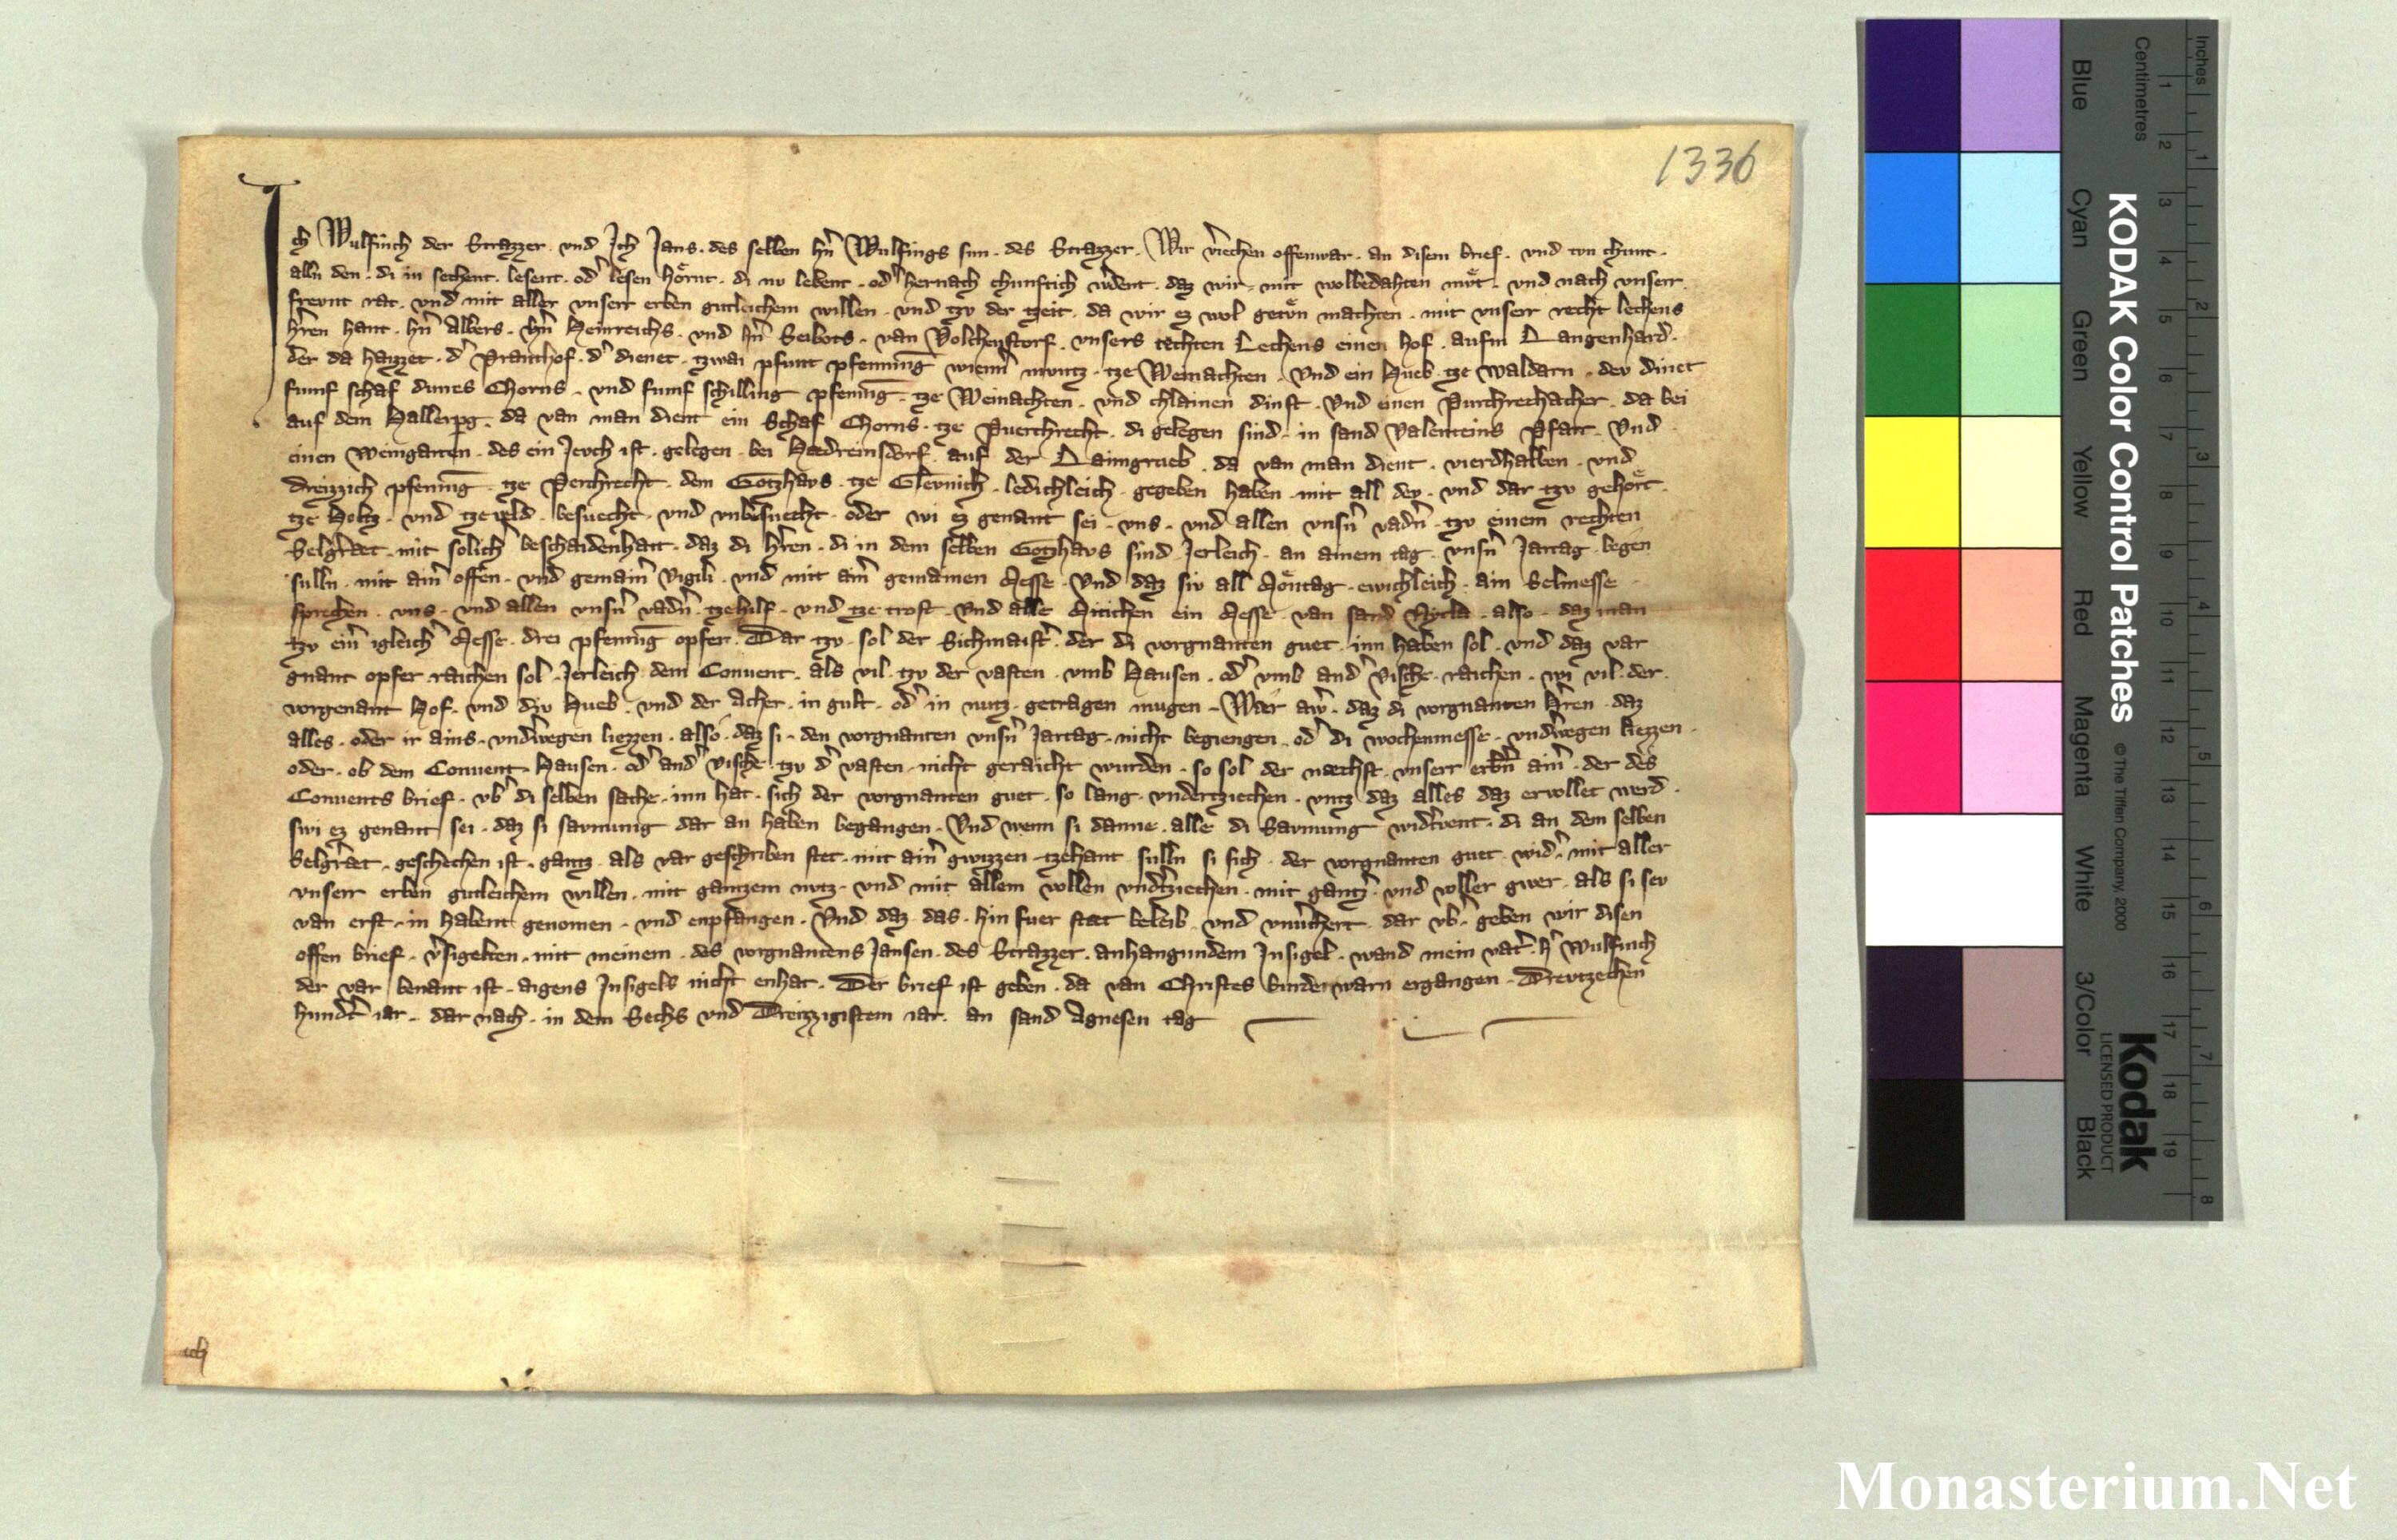 1336
Ich Wulfinch der Strazzer und Ich Jans des selben hn̄ Wulfings sun des Strazzer Wir v̓iechen offenwar an disem brief und tvn chunt
alln den di in sechent lesent od̓ lesen hoͤrnt di nv lebent od̓ hernach chunftich wͤdent daz wir mit wolbedahten mvͦt und nach unserr
frevnt rat und mit aller unserr erben gutleichem willen und tzv der tzeit da wir ez wol getvͦn machten mit unserr recht lechens
h̓ren hant hn̄ Albers hn̄ Heinreichs und hn̄ Seibots van Volchenstorf unsers rechten Lechens einen hof aufm Langenhard
der da haizzet d̓ Pranthof d̓ dienet tzwai pfunt pfenning wienn̓ mvntz tze Weinachten Und ein Hueb tze Waldarn dev dinet
fumf schaf dunes Chorns und fumf schilling pfening tze Weinachten und chlainen dinst Und einen Purchrechtacher da bei
auf dem Hallerpg da van man dient ein Schaf Chorns tze Puerchrecht di gelegen sind in sand Valenteins Pfarr Und
einen Weingarten des ein Jevch ist gelegen bei Hedreinsdorf auf der Laimgrueb da van man dient vierdhalben und
dreizzich pfening tze Perchrecht dem Gotzhavs tze Glevnich ledichleich gegeben haben mit all dev und dar tzv gehoͤrt
tze Holtz und tze veld besuecht und unbesuecht oder wi ez genant sei uns und allen unsn̓ vadn̓ tzv einem rechten
Selgret mit solich̓ beschaidenhait daz di h̓ren di in dem selben Gotzhavs sind Jerleich an ainem tag unsn̓ Jartag begen
sulln mit aim̓ offen und gemaim̓ Vigili und mit aim̓ gemainen Messe Und daz siv all Moͤntag ewichleich ain Selmesse
sprechen uns und allen unsn̓ vadn̓ tze hilf und tze trost Und alle Mitichen ein Messe van sand Nycla also daz man
tzv eim̓ igleich̓ Messe drei pfenning opfer Dar tzv sol der Sichmaist̓ der di vorgnanten guet inn haben sol und daz var
gnant opfer raichen sol Jerleich dem Convent als vil tzv der vasten umb Hausen od̓ umb and̓ Vische raichen wi vil der
vorgenant Hof und div Hueb und der Acher in gult od̓ in nutz getragen mugen Waͤr aw̓ daz di vorgnanten H̓ren daz
alles oder ir ains und̓wegen liezzen also daz si den vorgnanten unsn̓ Jartag nicht begiengen od̓ di wochenmesse und̓wegen liezzen
oder ob dem Convent Hausen od̓ and̓ Vische tzv d̓ vasten nicht geraicht wurden so sol der naechst unserr erbn̓ aim̓ der des
Convents brief ub̓ di selben sache inn hat sich der vorgnanten guet so lang undertziechen untz daz alles daz ervollet werd
swi ez genant sei daz si savmung dar an haben begangen Und wenn si danne alle di Savmung wid̓tvent di an dem selben
Selgret geschechen ist gantz als var geschriben stet mit aim̓ gwizzen tzehant sulln si sich der vorgnanten guet wid̓ mit aller
unserr erben gutleichem willen mit gantzem nutz und mit allem vollen und̓tziechen mit gantz̓ und voller gwer als si sev
van erst in habent genomen und enpfangen Und daz das hin fuer staet beleib und unv̓chert dar ub̓ geben wir disen
offen brief v̓sigelten mit meinem des vorgnantens Jansen des Strazzer anhangundem Insigel wand mein vat̓ h̓ Wulfinch
der var benant ist aigens Insigels nicht enhat Der brief ist geben da van Christes burde warn ergangen Drevtzechen
hundt̓ iar dar nach in dem Sechs und Dreizzigistem iar an sand Agnesen tag
Inches
Centimetres
Blue Cyan Green Yellow Red Magenta White 3/Color Black
KODAK Color Control Patches
© The Tiffen Company, 2000
Kodak
LICENSED PRODUCT
1 2 3 4 5 6 7 8 9 10 11 12 13 14 15 16 17 18 19
1 2 3 4 5 6 7 8
Monasterium.Net